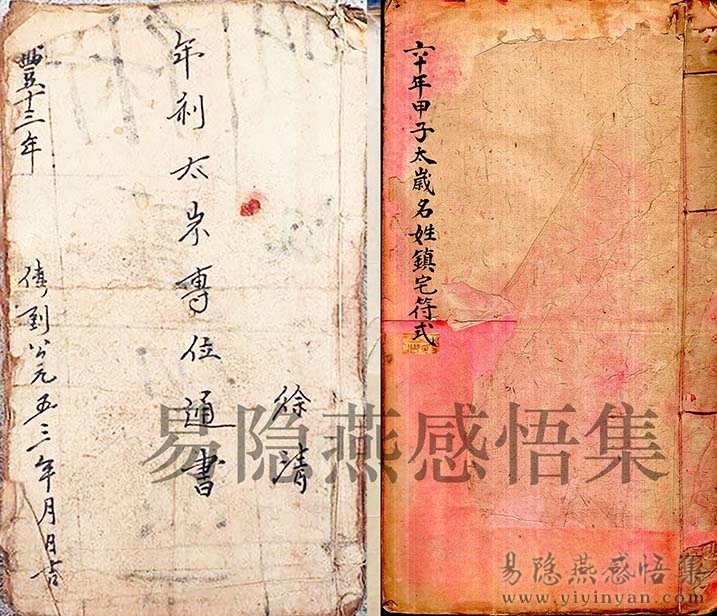 徐清
年利太岁專位通書
豐十三年
傳到公元五三年月日吉
六十年甲子太歲名姓鎮宅符式
易隐燕感悟集
易隐燕感悟集
www.yiyinyan.com